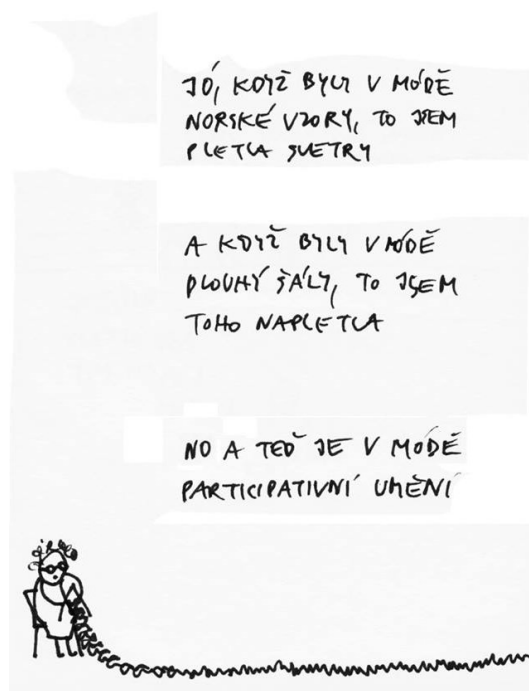 JÓ, KDYŽ BYLY V MÓDĚ
NORSKÉ VZORY, TO JSEM
PLETLA SVETRY
A KDYŽ BYLY V MÓDĚ
DLOUHÝ ŠÁLY, TO JSEM
TOHO NAPLETLA
NO A TEĎ JE V MÓDĚ
PARTICIPATIVNÍ UMĚNÍ